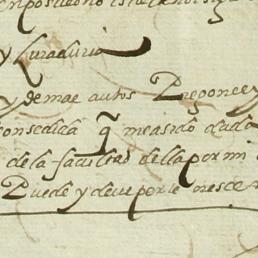 y Curaduria
y demas autos Pregones y
consedida q me a sido dada
de la facultad della por mi
Puede y deve por le nesce